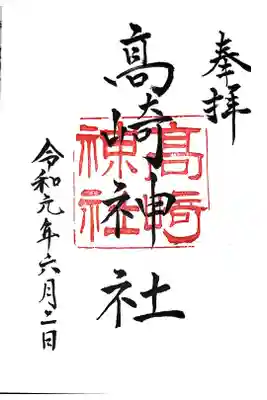 奉拝
髙崎神社
髙崎神社
令和元年六月二日